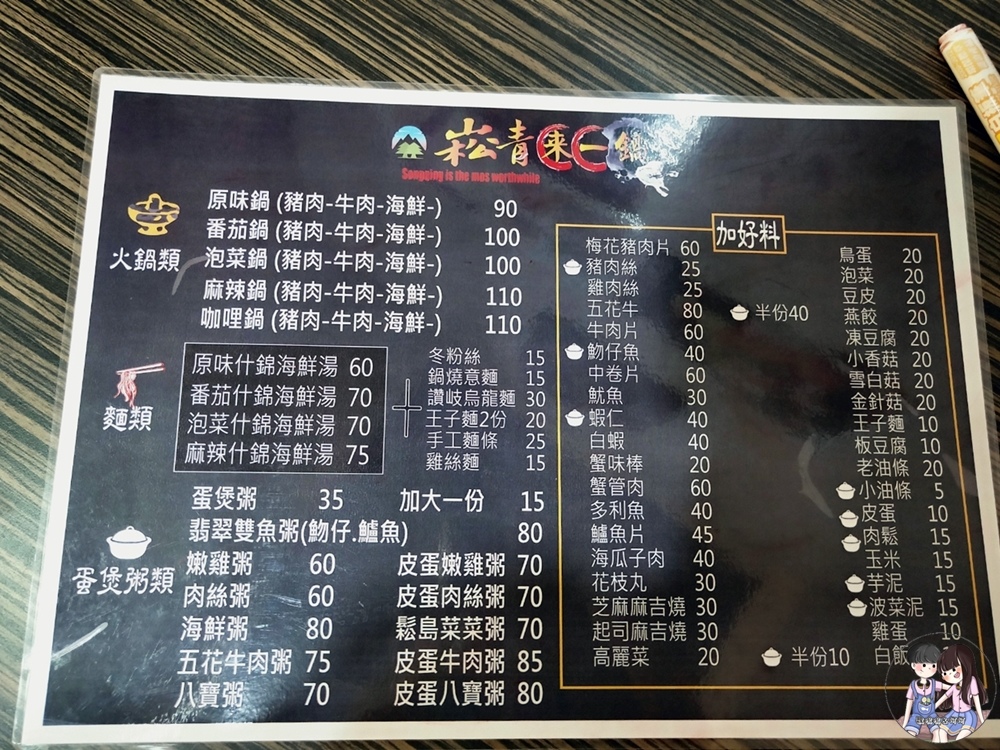 崧青來一鍋
Songqing is the mas worthwhile
火鍋類
原味鍋 (豬肉-牛肉-海鮮-) 90
番茄鍋 (豬肉-牛肉-海鮮-) 100
泡菜鍋 (豬肉-牛肉-海鮮-) 100
麻辣鍋 (豬肉-牛肉-海鮮-) 110
咖哩鍋 (豬肉-牛肉-海鮮-) 110
麵類
原味什錦海鮮湯 60
番茄什錦海鮮湯 70
泡菜什錦海鮮湯 70
麻辣什錦海鮮湯 75
+
冬粉絲 15
鍋燒意麵 15
讚岐烏龍麵 30
王子麵2份 20
手工麵條 25
雞絲麵 15
蛋煲粥類
蛋煲粥 35 加大一份 15
翡翠雙魚粥(魩仔.鱸魚) 80
嫩雞粥 60 皮蛋嫩雞粥 70
肉絲粥 60 皮蛋肉絲粥 70
海鮮粥 80 鬆島菜菜粥 70
五花牛肉粥 75 皮蛋牛肉粥 85
八寶粥 70 皮蛋八寶粥 80
加好料
梅花豬肉片 60
豬肉絲 25
雞肉絲 25
五花牛 80 半份40
牛肉片 60
魩仔魚 40
中卷片 60
魷魚 30
蝦仁 40
白蝦 40
蟹味棒 20
蟹管肉 60
多利魚 40
鱸魚片 45
海瓜子肉 40
花枝丸 30
芝麻麻吉燒 30
起司麻吉燒 30
高麗菜 20 半份10
鳥蛋 20
泡菜 20
豆皮 20
燕餃 20
凍豆腐 20
小香菇 20
雪白菇 20
金針菇 20
王子麵 10
板豆腐 10
老油條 20
小油條 5
皮蛋 10
肉鬆 15
玉米 15
芋泥 15
波菜泥 15
雞蛋 10
白飯